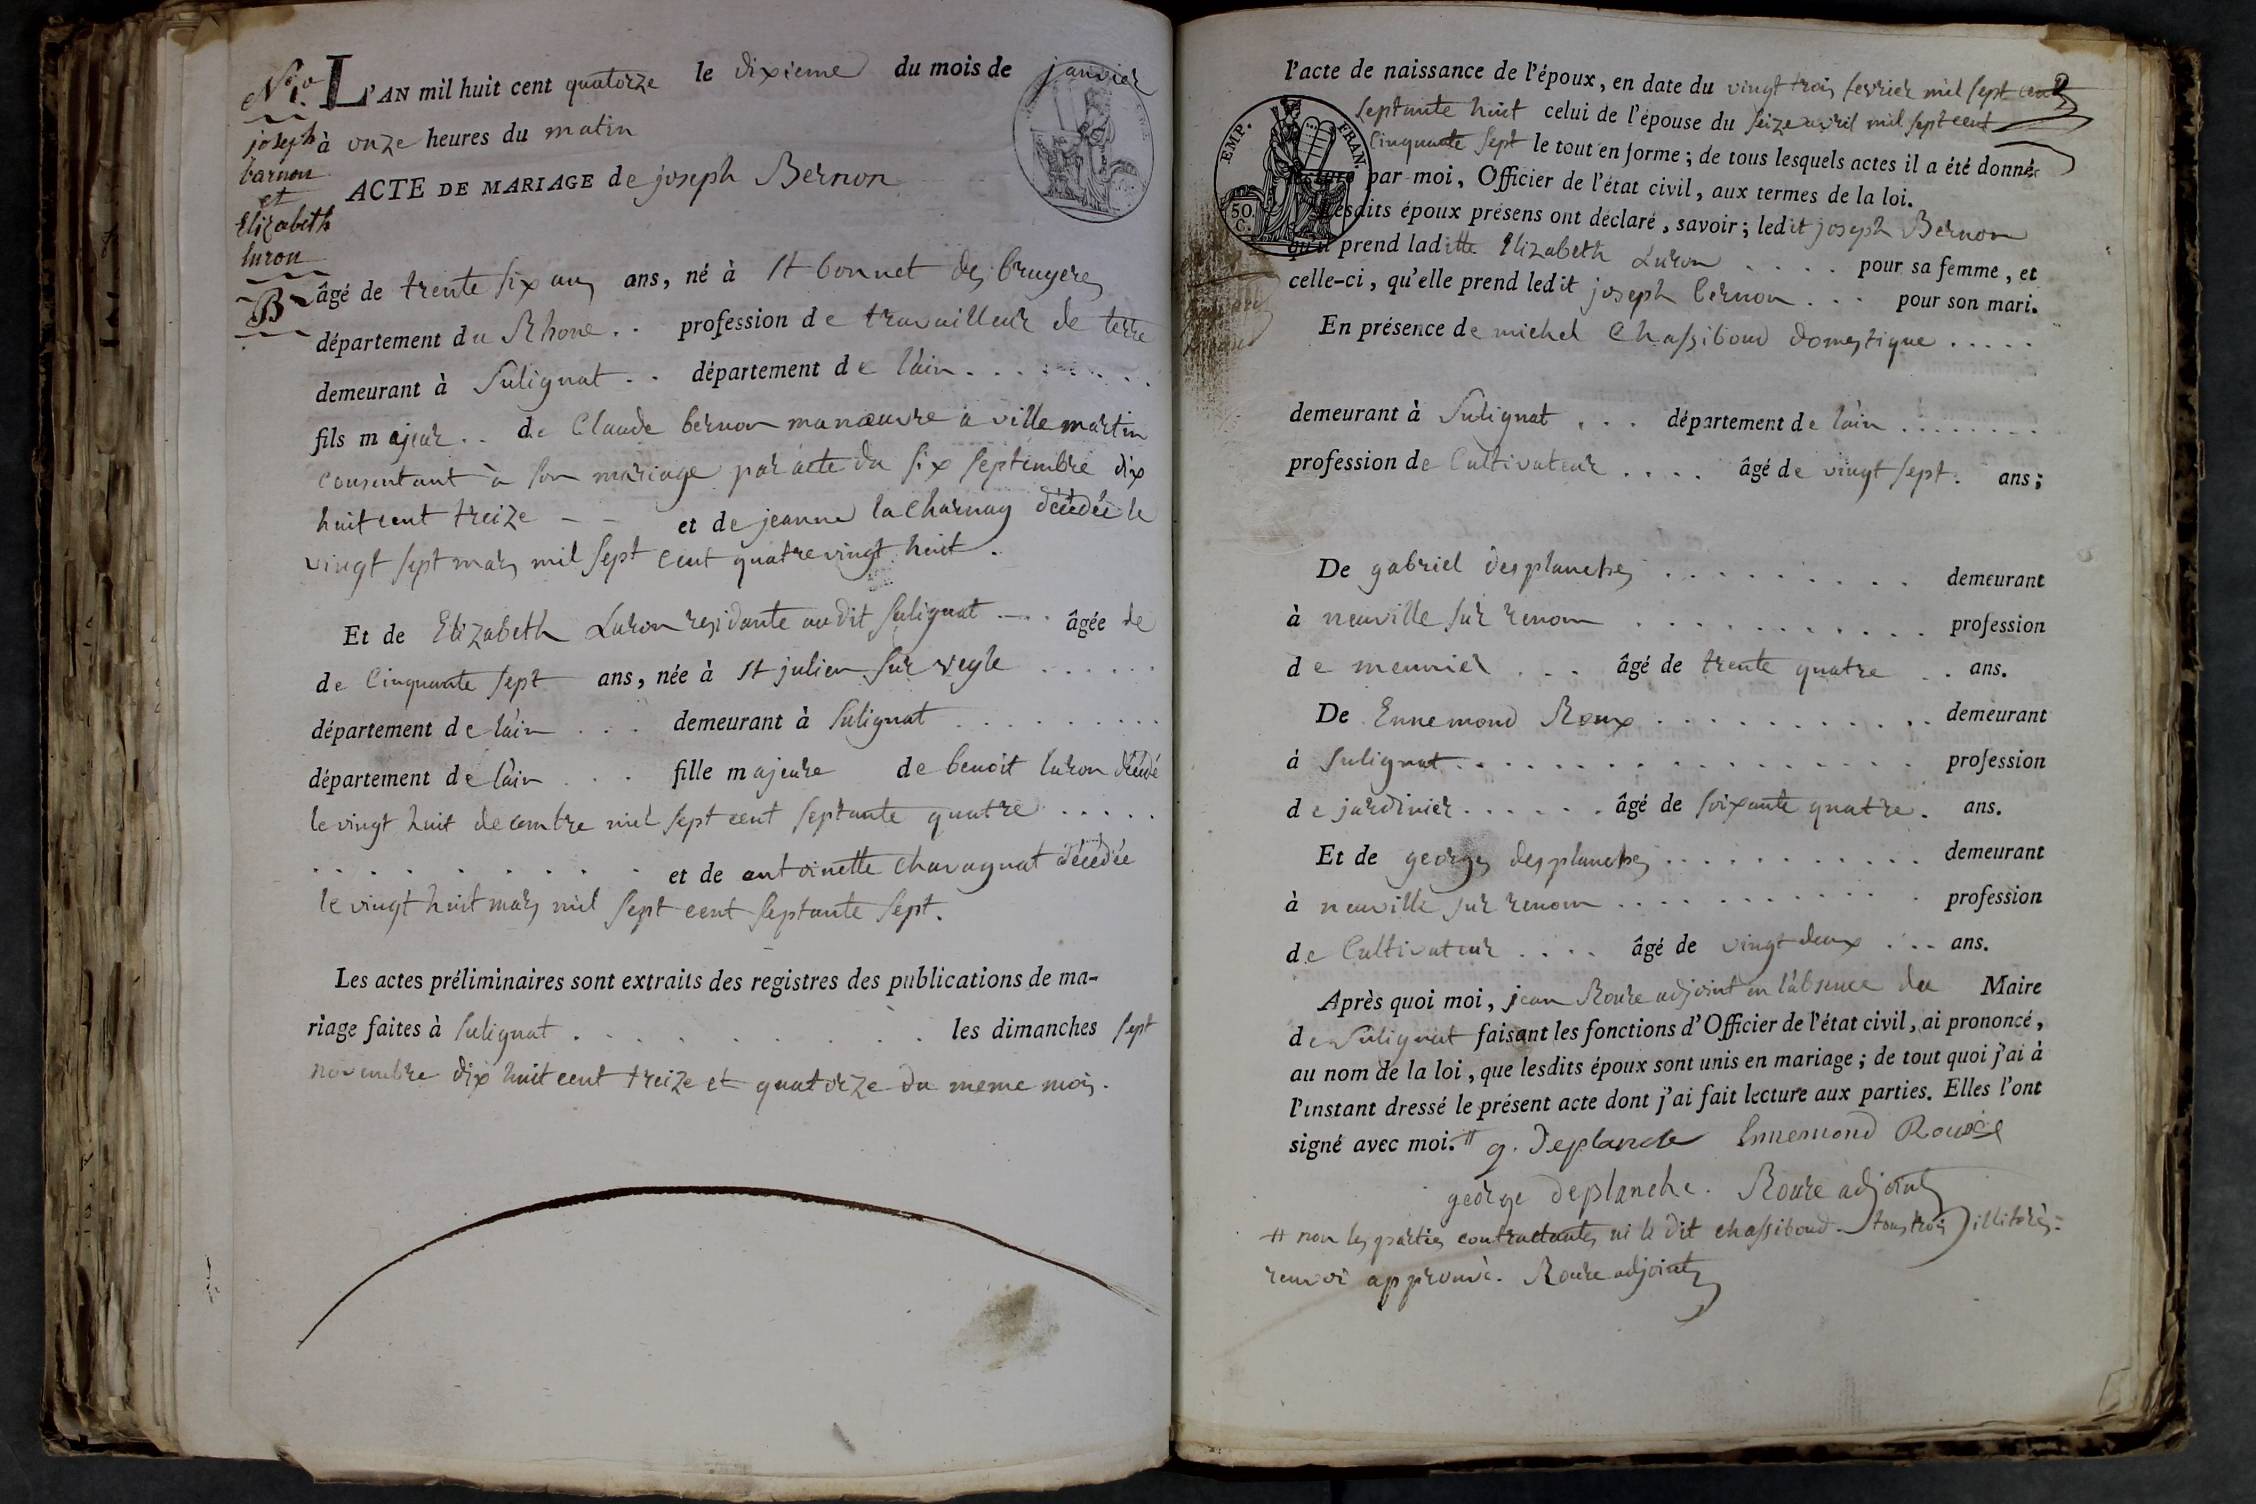 N.º 1.er L'AN mil huit cent quatorze le dixieme du mois de janvier
joseph à onze heures du matin
barnon
et ACTE DE MARIAGE de joseph Bernon
Elizabeth
luron
B
âgé de trente six ans ans, né à St bonnet des bruyeres
département du Rhone . . profession de travailleur de terre
demeurant à Sulignat . . département de l'ain . . . . . . . .
fils majeur . . de Claude bernon manœuvre a ville martin
consentant à son mariage par acte du six septembre dix
huit cent treize — — et de jeanne la Charnay décédée le
vingt sept mars mil sept cent quatre vingt huit .
Et de Elizabeth Luron residante au dit Sulignat — . . âgée de
de Cinquante sept ans, née à St julien sur veyle . . . . . .
département de l'ain . . . demeurant à Sulignat . . . . . . . . .
département de l'ain . . . fille majeure de benoit luron décédé
le vingt huit decembre mil sept cent septante quatre . . . . .
. . . . . . . . et de antoinette chavagnat décédée
le vingt huit mars mil sept cent septante sept.
Les actes préliminaires sont extraits des registres des publications de ma-
riage faites à Sulignat . . . . . . . . . les dimanches sept
novembre dix huit cent treize et quatorze du meme mois .
2
l'acte de naissance de l'époux, en date du vingt trois fevrier mil sept cent
septante huit celui de l'épouse du seize avril mil sept cent
Cinquante sept le tout en forme; de tous lesquels actes il a été donné
lecture par moi, Officier de l'état civil, aux termes de la loi.
EMP. FRAN.
50. C.
Lesdits époux présens ont déclaré, savoir; ledit joseph Bernon
qu'il prend laditte Elizabeth Luron . . . . pour sa femme, et
celle-ci, qu'elle prend ledit joseph bernon . . . pour son mari.
En présence de michel Chassiboud domestique . . . . .
demeurant à Sulignat . . . département de l'ain . . . . . . . .
profession de Cultivateur . . . . âgé de vingt sept . ans;
De gabriel desplanches . . . . . . . . . demeurant
à neuville sur renom . . . . . . . . . . . profession
de meunier . . . âgé de trente quatre . . ans.
De Ennemond Roux . . . . . . . . . . . . demeurant
à Sulignat . . . . . . . . . . . . . . . . profession
de jardinier . . . . . . âgé de soixante quatre . ans.
Et de georges desplanches . . . . . . . . . . . demeurant
à neuville sur renom . . . . . . . . . . . profession
de Cultivateur . . . . âgé de vingt deux . . . ans.
Après quoi moi, jean Roure adjoint en l'absence du Maire
de Sulignat faisant les fonctions d'Officier de l'état civil, ai prononcé,
au nom de la loi, que lesdits époux sont unis en mariage; de tout quoi j'ai à
l'instant dressé le présent acte dont j'ai fait lecture aux parties. Elles l'ont
signé avec moi. # g. Deplanche Ennemond
george deplanche . Roure adjoint
# non les parties contractantes ni le dit chassiboud . tous trois illiterés =
renvoi approuvé . Roure adjoint